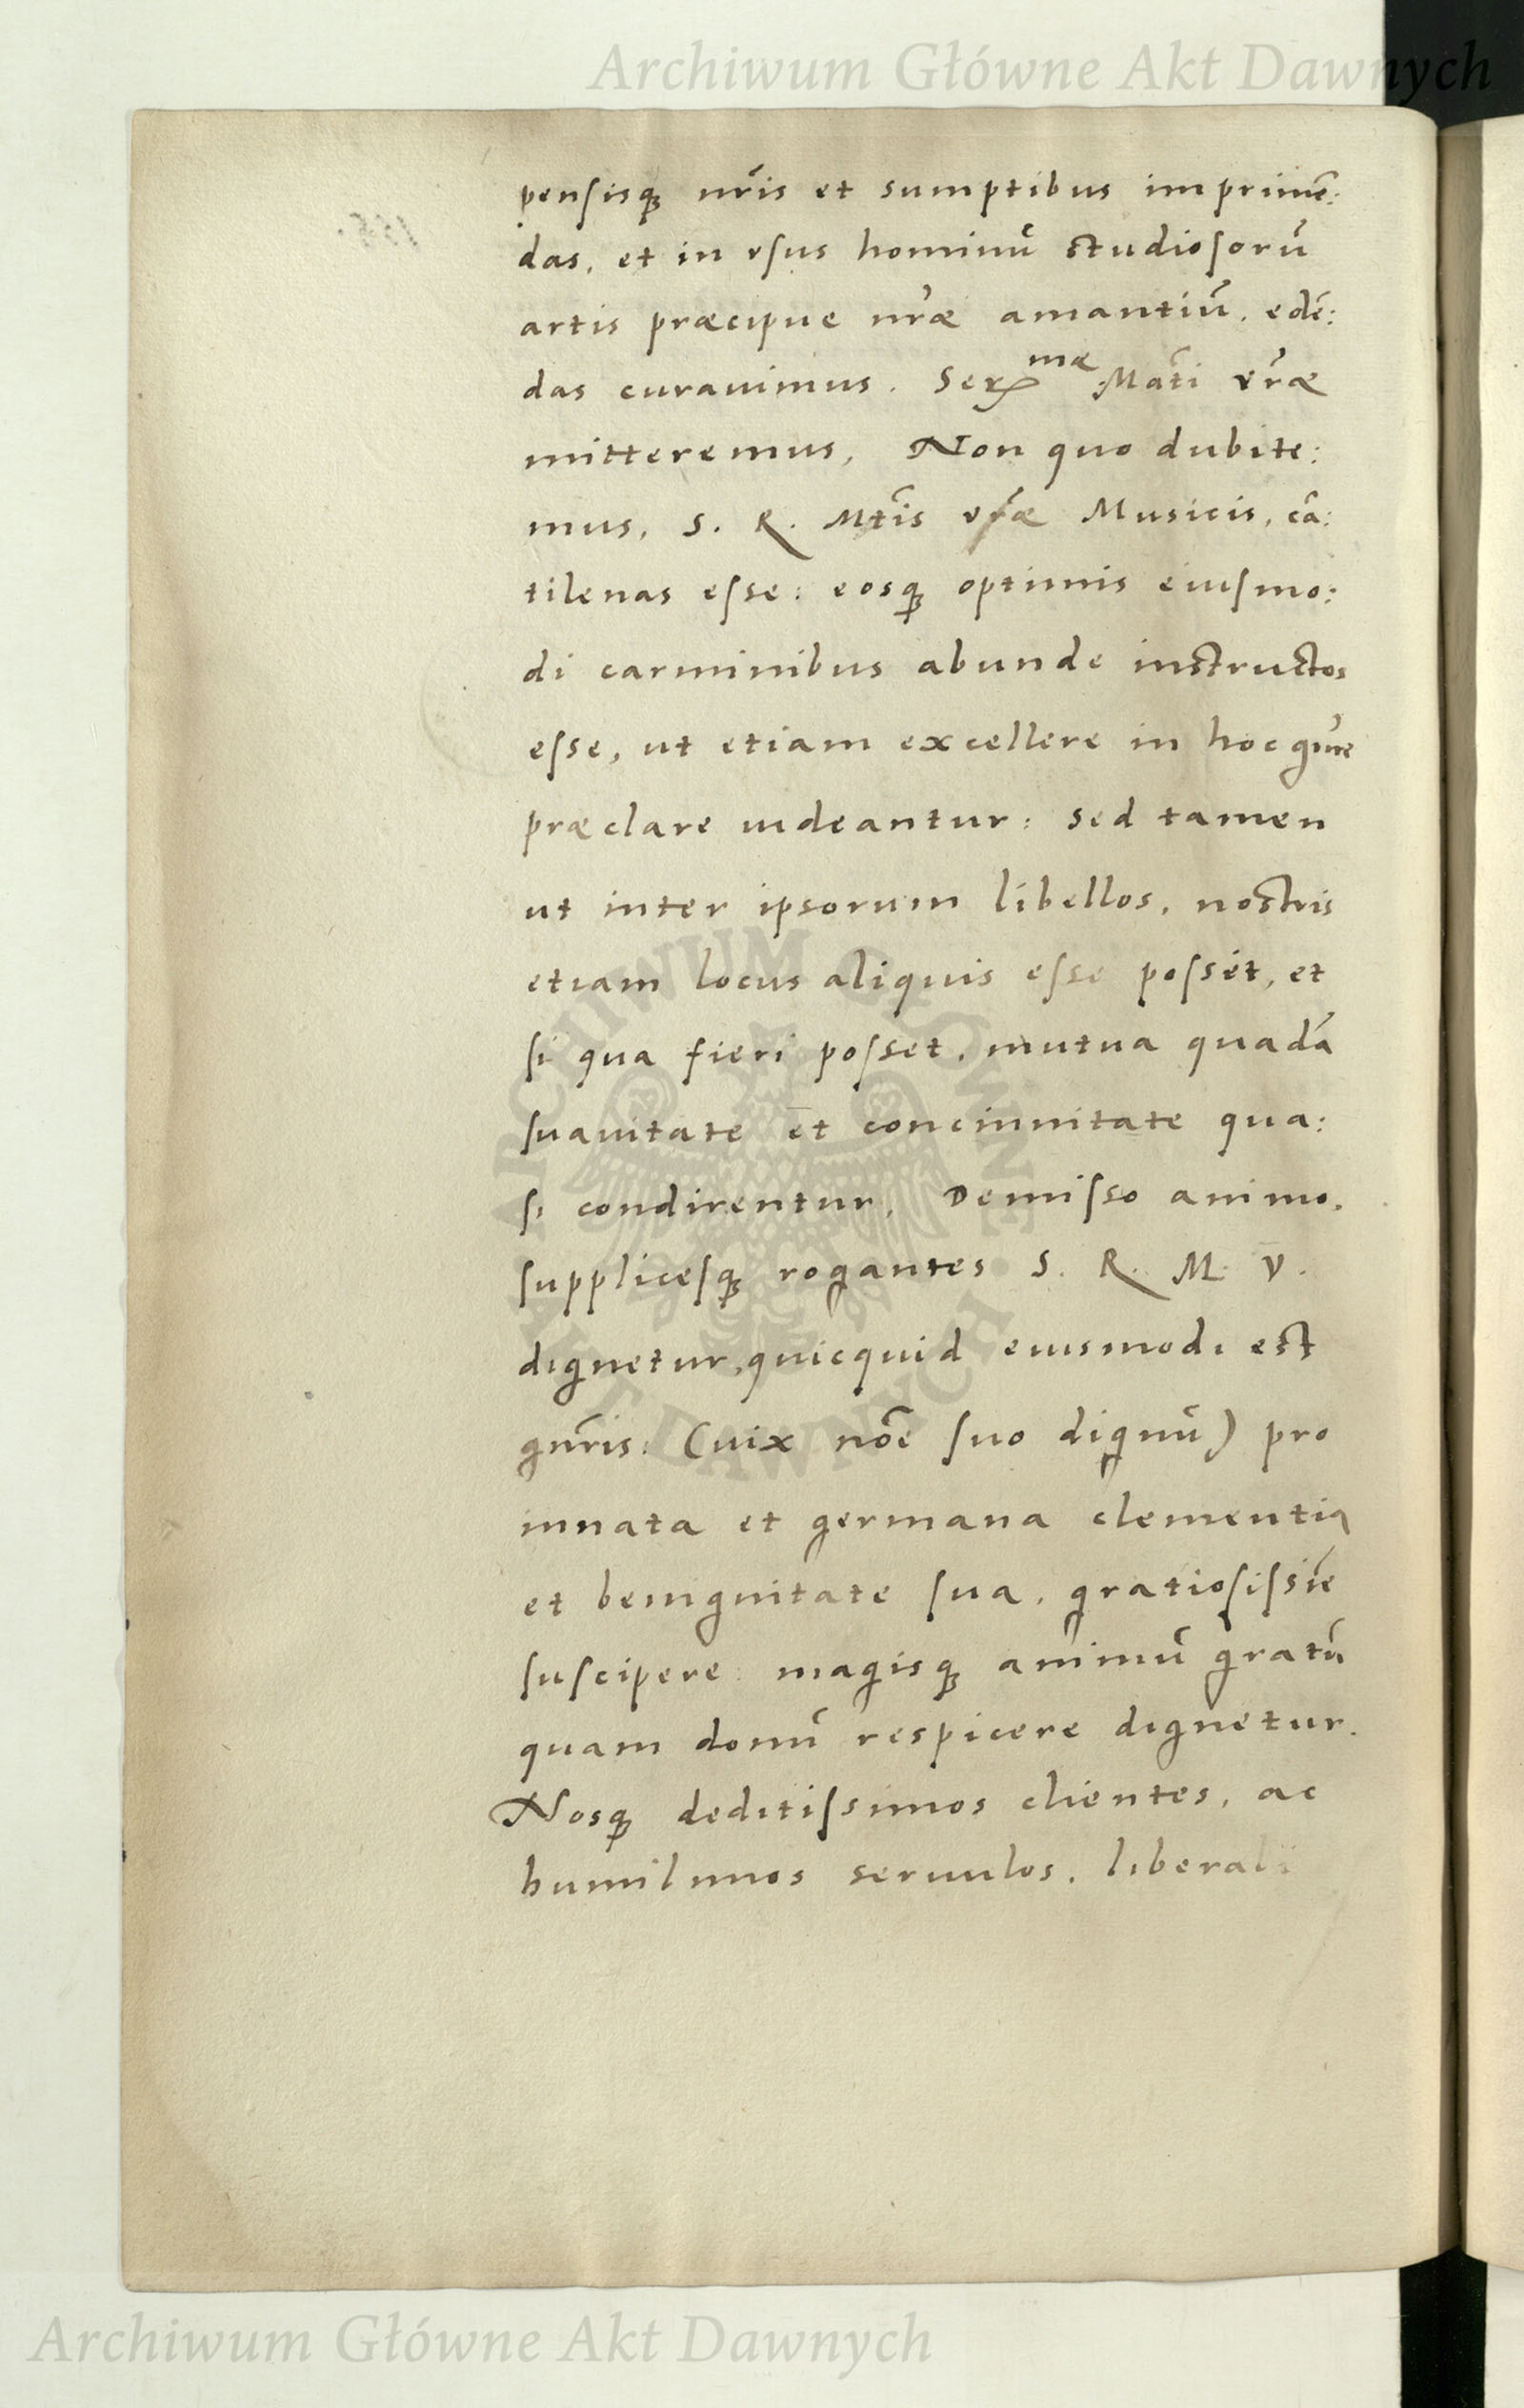 Archiwum Główne Akt Dawnych
pensisqꝫ nr̃is et sumptibus imprimẽ:
das, et in vsus hominũ studiosorũ
artis præcipue nr̃æ amantiũ, edẽ:
das curauimus. Ser^mæ Mãti vr̃æ
mitteremus, Non quo dubite:
mus, S. R. Mtĩs vr̃æ Musicis, cã:
tilenas esse: eosqꝫ optimis eiusmo:
di carminibus abunde instructos
esse, ut etiam excellere in hoc gñre
præclare uideantur: sed tamen
ut inter ipsorum libellos, nostris
etiam locus aliquis esse posset, et
si qua fieri posset, mutua quadã
suauitate et concinnitate qua:
si condirentur, Demisso animo,
supplicesqꝫ rogantes S. R. M. V.
dignetur, quicquid eiusmodi est
gñris: (uix nõe suo dignũ) pro
innata et germana clementia
et benignitate sua, gratiosissiẽ
suscipere: magisqꝫ animũ gratũ
quam donũ respicere dignetur.
Nosqꝫ deditissimos clientes, ac
humilimos seruulos, liberali
ARCHIWUM GŁÓWNE AKT DAWNYCH
Archiwum Główne Akt Dawnych